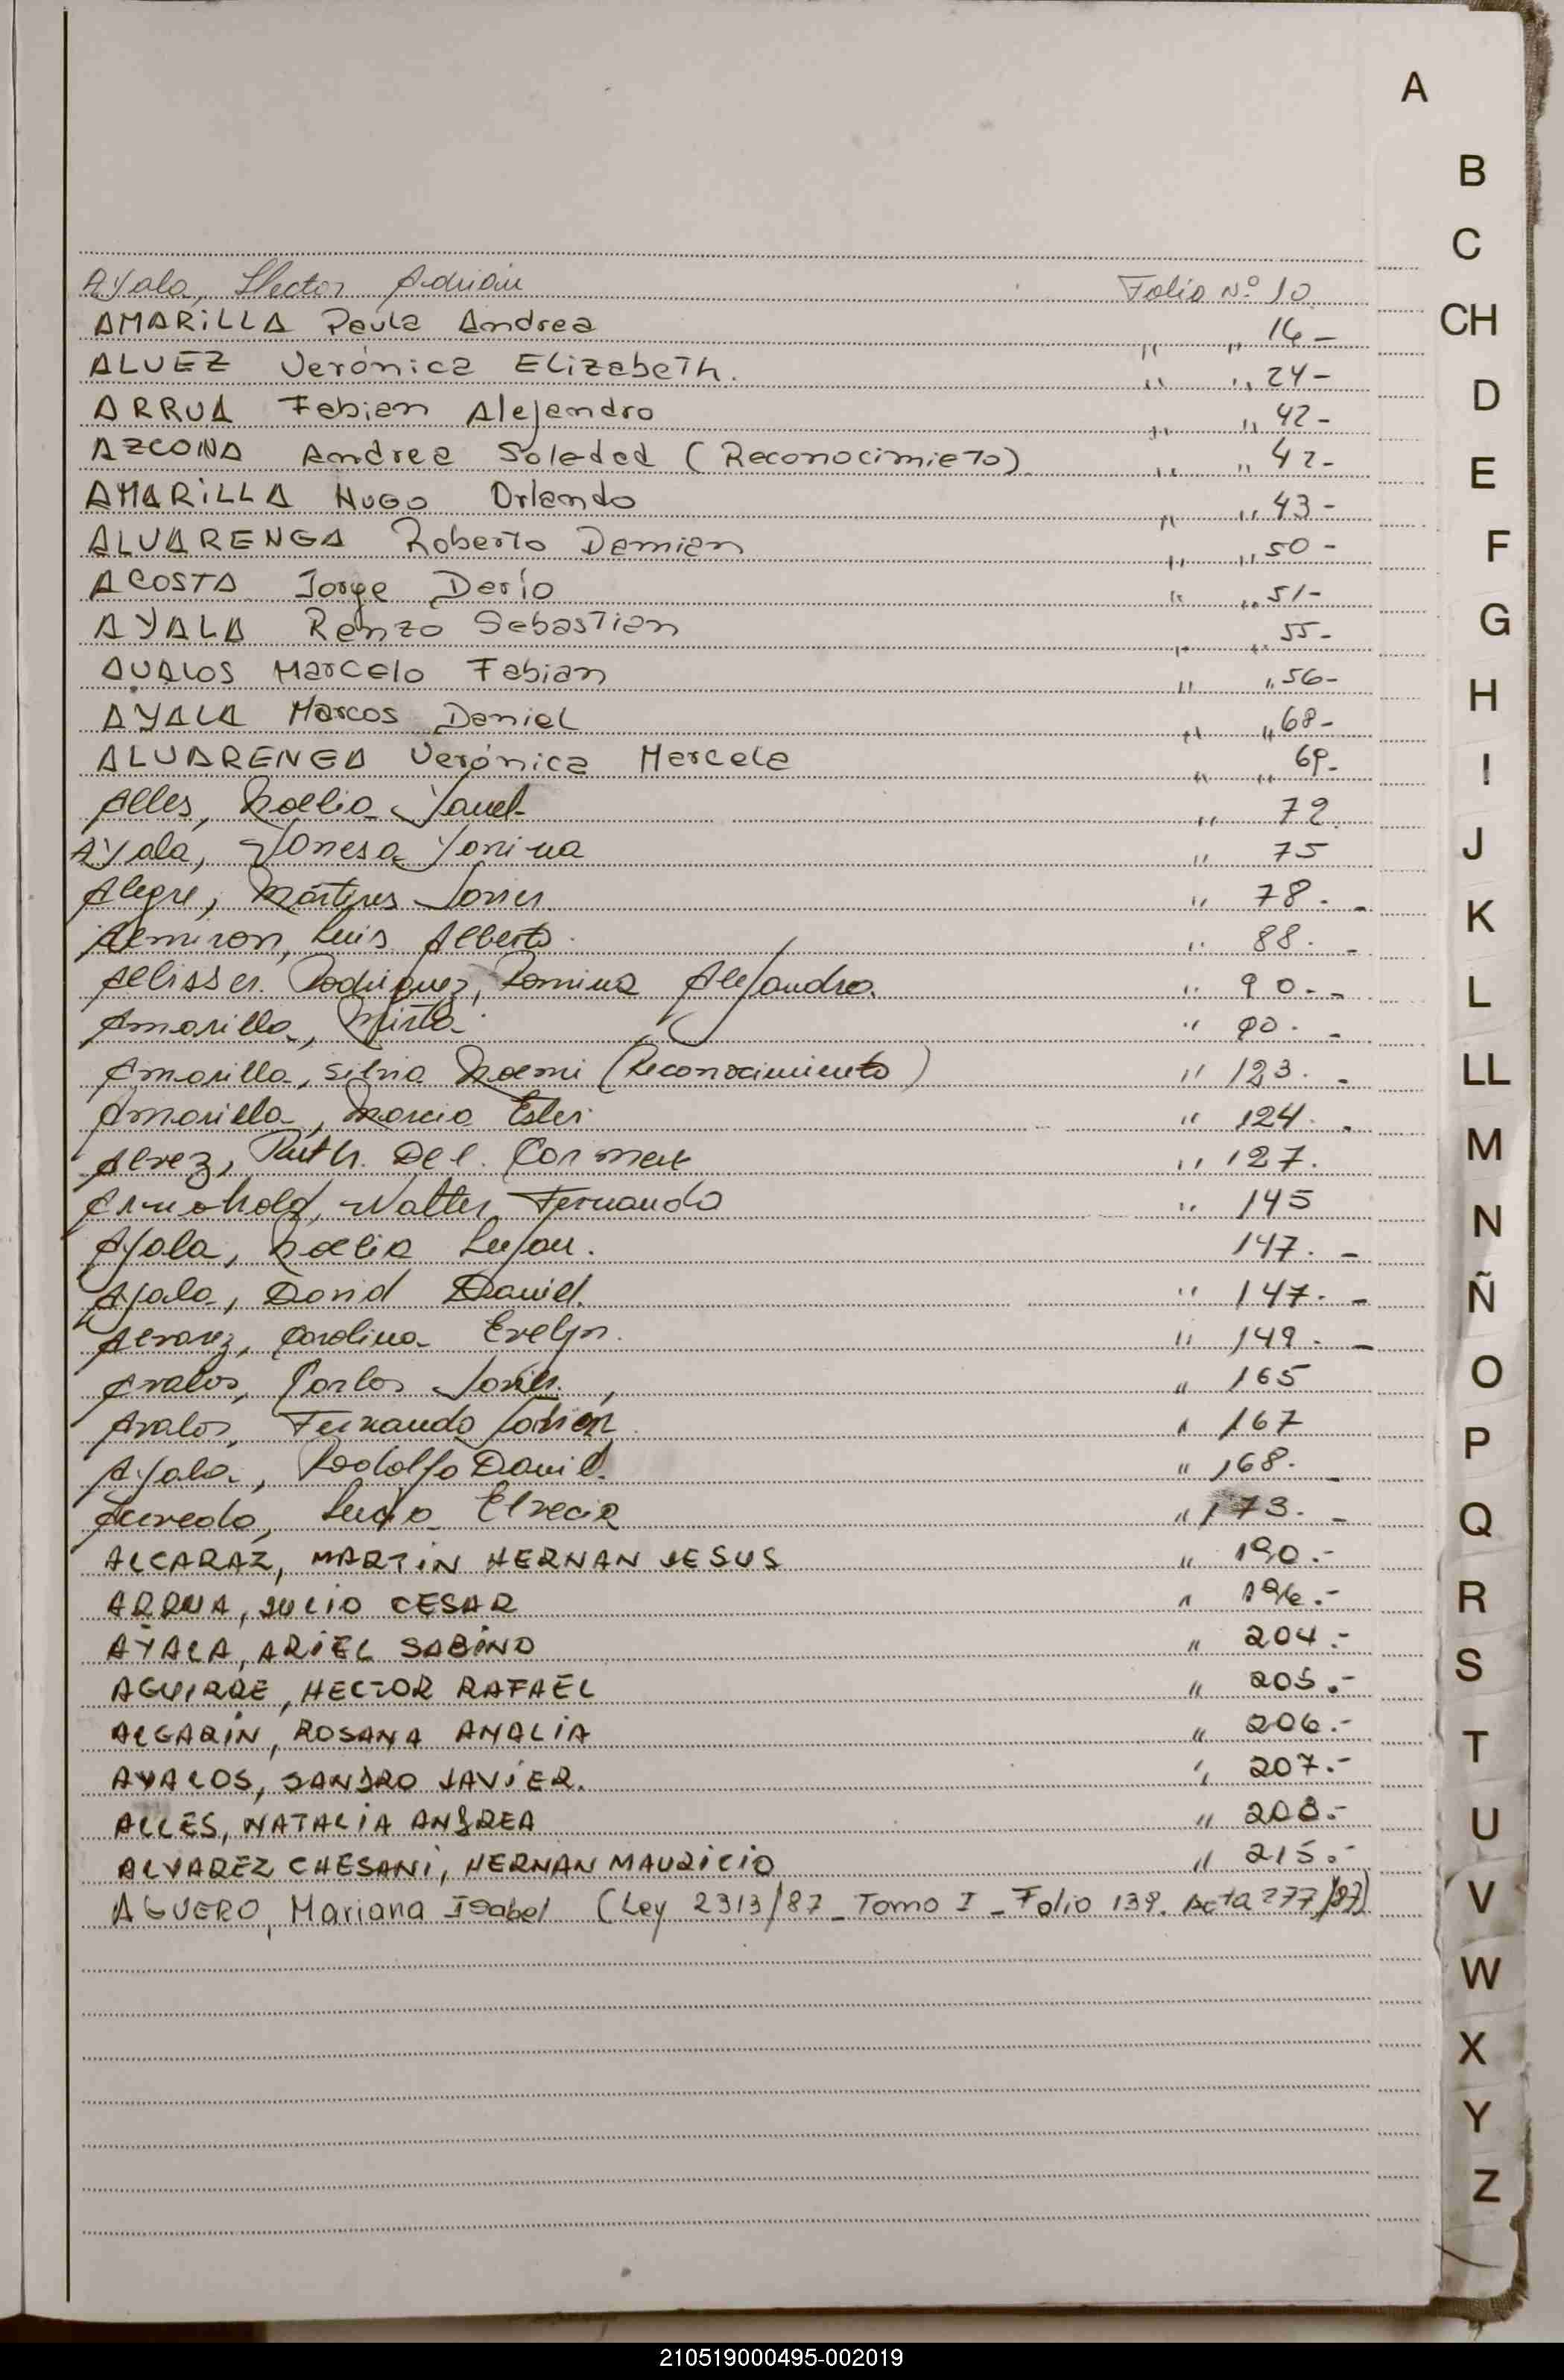 A
B
C
CH
D
E
F
G
H
I
J
K
L
LL
M
N
Ñ
O
P
Q
R
S
T
U
V
W
X
Y
Z
Ayala, Hector Adrián Folio Nº 10
AMARiLLA Paula Andrea " " 16-
ALVEZ Verónica Elizabeth. " " 24-
ARRUA Fabian Alejandro " " 42-
AZCONA Andrea Soledad (Reconocimieto) " " 42-
AMARiLLA HUGO Orlando " " 43-
ALVARENGA Roberto Damian " " 50-
ACOSTA Jorge Darío " " 51-
AYALA Renzo Sebastian " " 55-
AVALOS Marcelo Fabian " " 56-
AYALA Marcos Daniel " " 68-
ALVARENGA Verónica Marcela " " 69-
Alles, Noelia Yanel " 72.
Ayala, Vanesa Yanina " 75
Alegre, Martires Javier " 78.-
Almiron, Luis Alberto. " 88.-
Rodriguez, Romina Alejandra. " 90.-
Amarilla, Mirta. " 90.-
Amarilla, Silvia Noemi (Reconocimiento) " 123.-
Amarilla, Marcia Ester. " 124.-
Alvez, Ruth. Del. Carmen " 127.
Walter Fernando " 145
Ayala, Noelia Lujan. 147.-
Ayala, David Daniel. " 147.-
Alvarez, Carolina Evelyn. " 149.-
Avalos, Carlos Javier. " 165
Avalos, Fernando Fabian " 167
Ayala, Rodolfo David. " 168.-
Acevedo, Lucia " 173.-
ALCARAZ, MARTiN HERNAN JESUS " 190.-
ARRUA, JULiO CESAR " 196.-
AYALA, ARiEL SABiNO " 204.-
AGUiRRE, HECTOR RAFAEL " 205.-
ALGARiN, ROSANA ANALiA " 206.-
AVALOS, SANDRO JAViER. " 207.-
ALLES, NATALiA ANDREA " 208.-
ALVAREZ CHESANi, HERNAN MAURiCiO " 215.-
AGUERO, Mariana Isabel (Ley 2313/87_Tomo I_Folio 139. Acta 277/87)
210519000495-002019